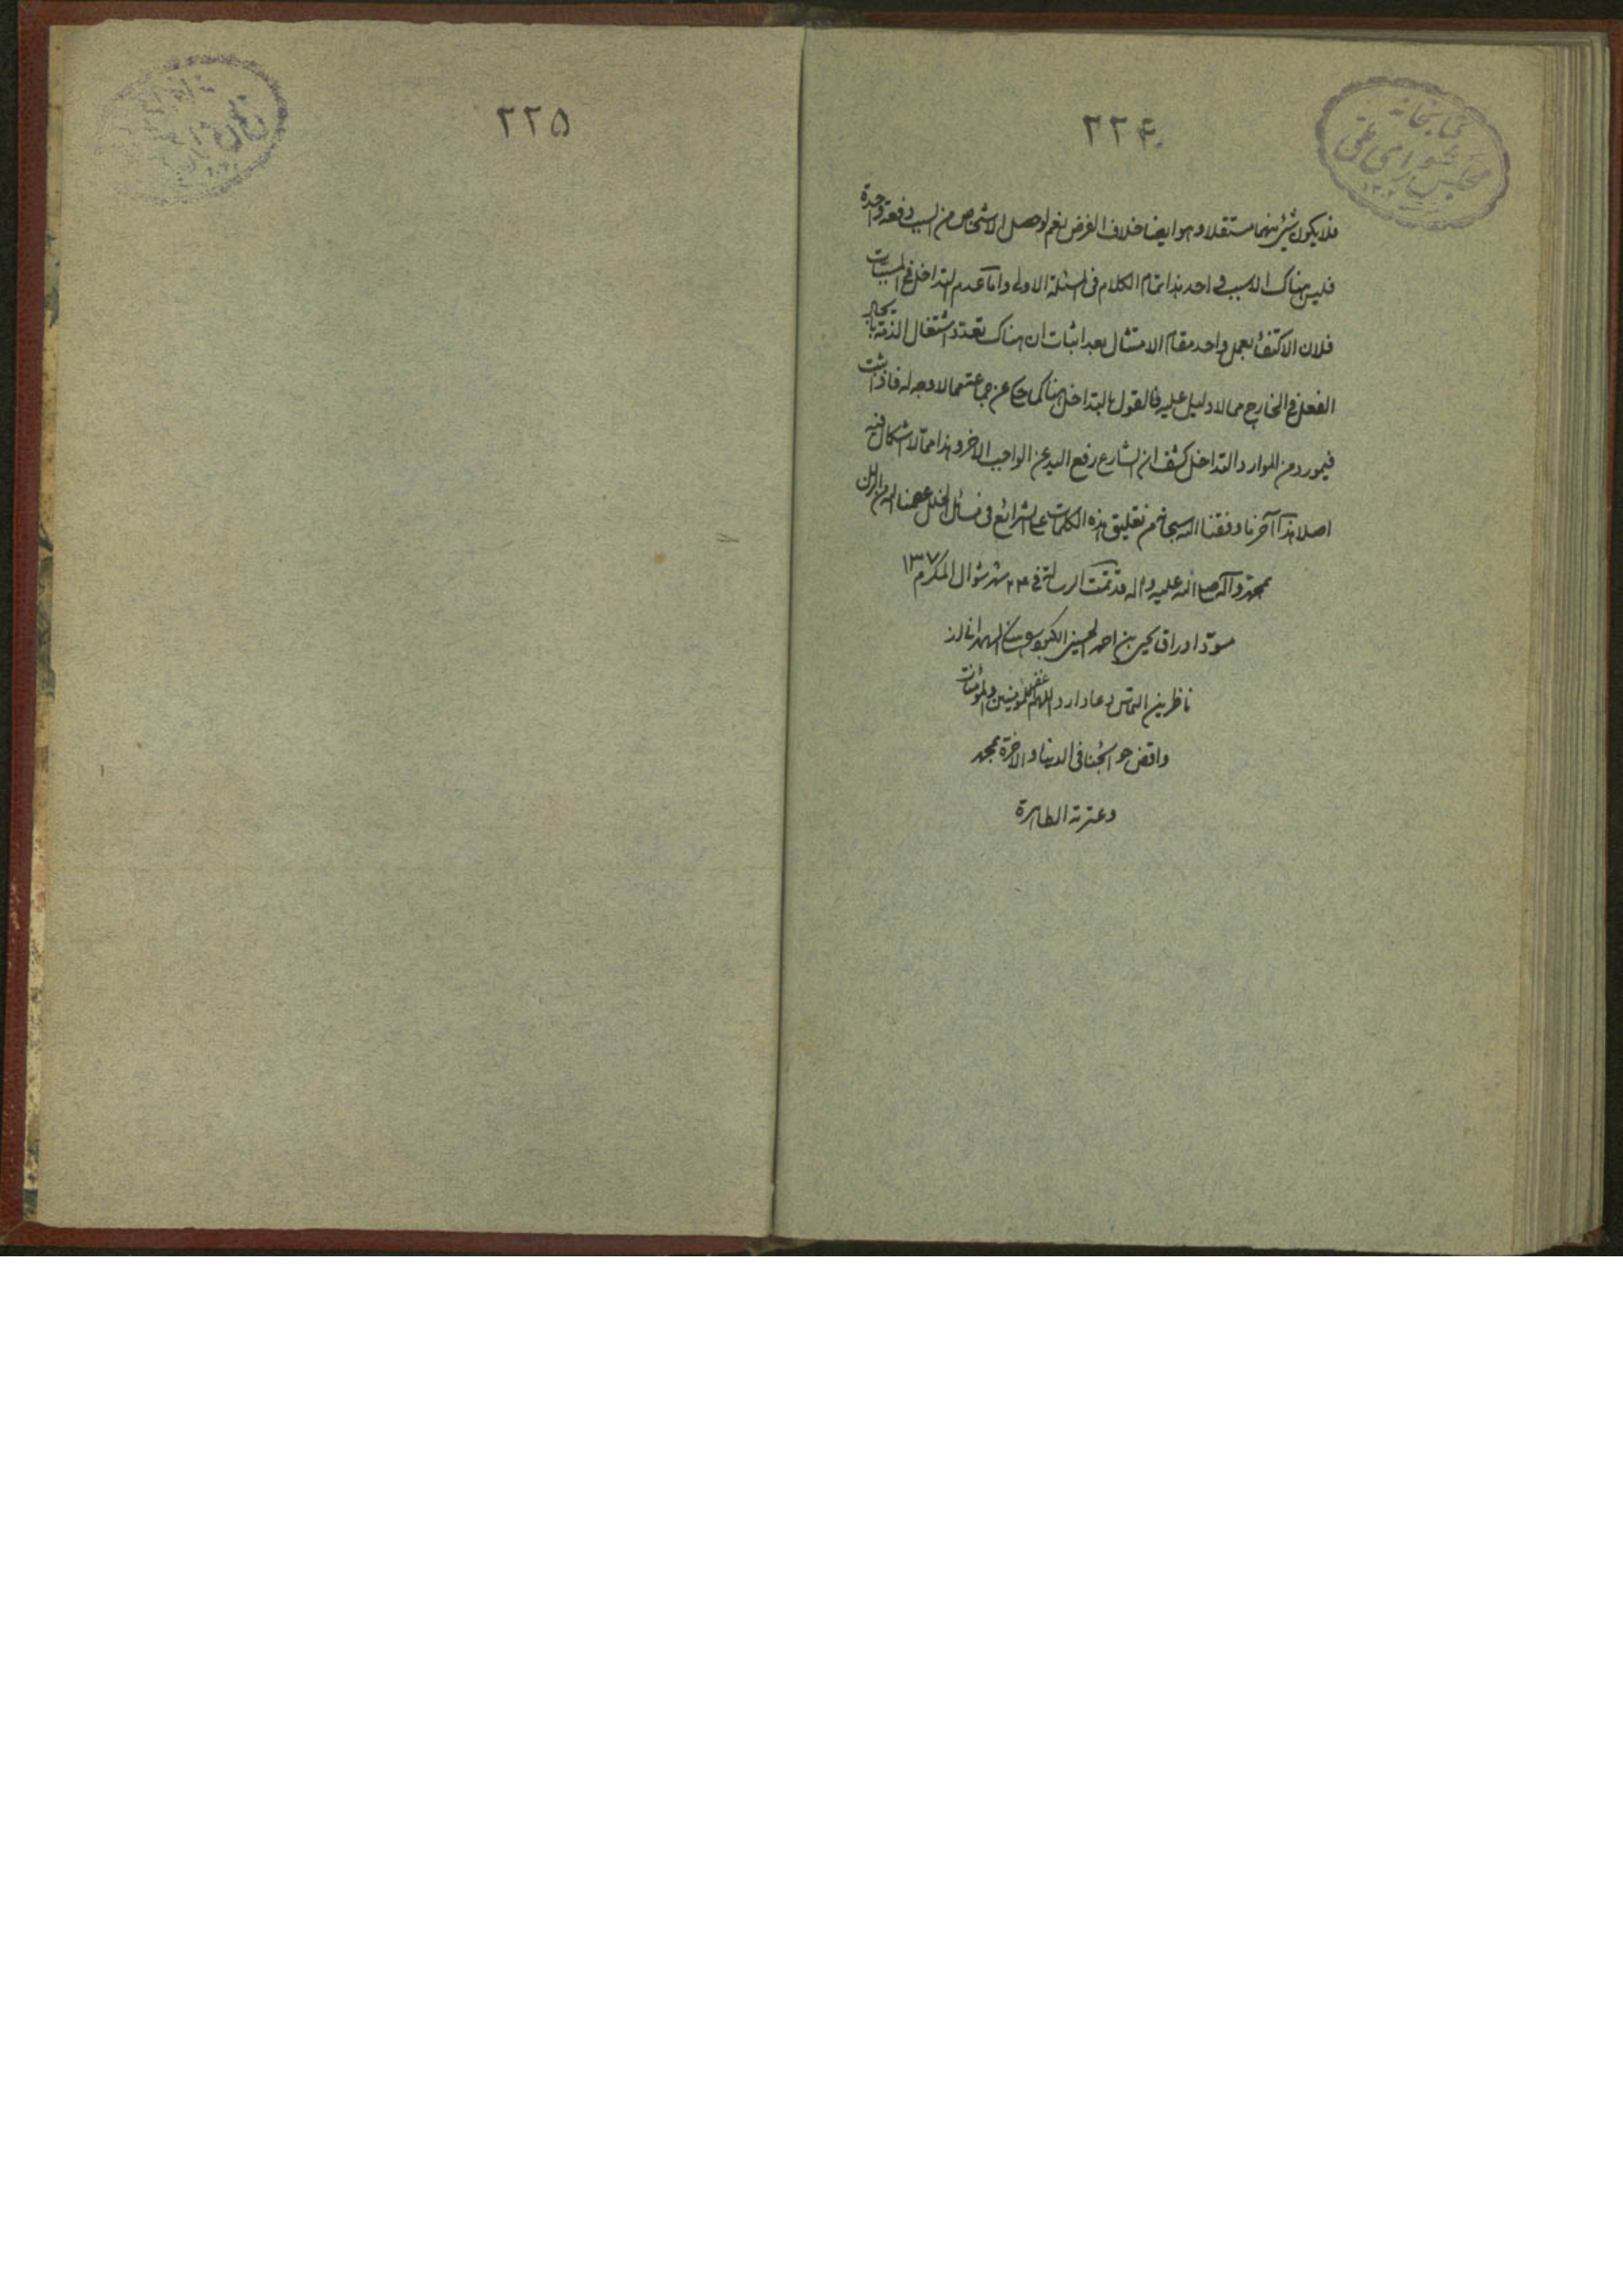 ۲۲۴
کتابخانه
مجلس شورای ملی
فلا یکون شیئ منهما مستقلا و هو ایضا خلاف الفرض نعم لو حصل الاشخاص من السبب دفعة واحدة
فلیس هناک الا سبب واحد هذا تمام الکلام فی المسئلة الاولی و اما عدم التداخل فی المسببات
فلان الاکتفاء بعمل واحد مقام الامتثال بعد اثبات ان هناک تعدد اشتغال الذمة بایجاد
الفعل فی الخارج مما لا دلیل علیه فالقول بالتداخل هناک کما حکی عن جماعة مما لا وجه له فاذا ثبت
فی مورد من الموارد التداخل کشف ان الشارع رفع الید عن الواجب الاخر و هذا مما لا اشکال فیه
اصلا هذا آخر ما وفقنا الله سبحانه من تعلیق هذه الکلمات علی الشرائع فی مسائل الخلل عصمنا الله من الزلل
بمحمد و آله صلی الله علیه و اله قد تمت الرسالة فی ۲۴ شهر شوال المکرم
مسود اوراق یحیی بن احمد الحسینی از
ناظرین التماس دعا دارد اللهم اغفر للمؤمنین و المؤمنات
واقض حوائجنا فی الدنیا و الاخرة بمحمد
و عترته الطاهرة
۲۲۵